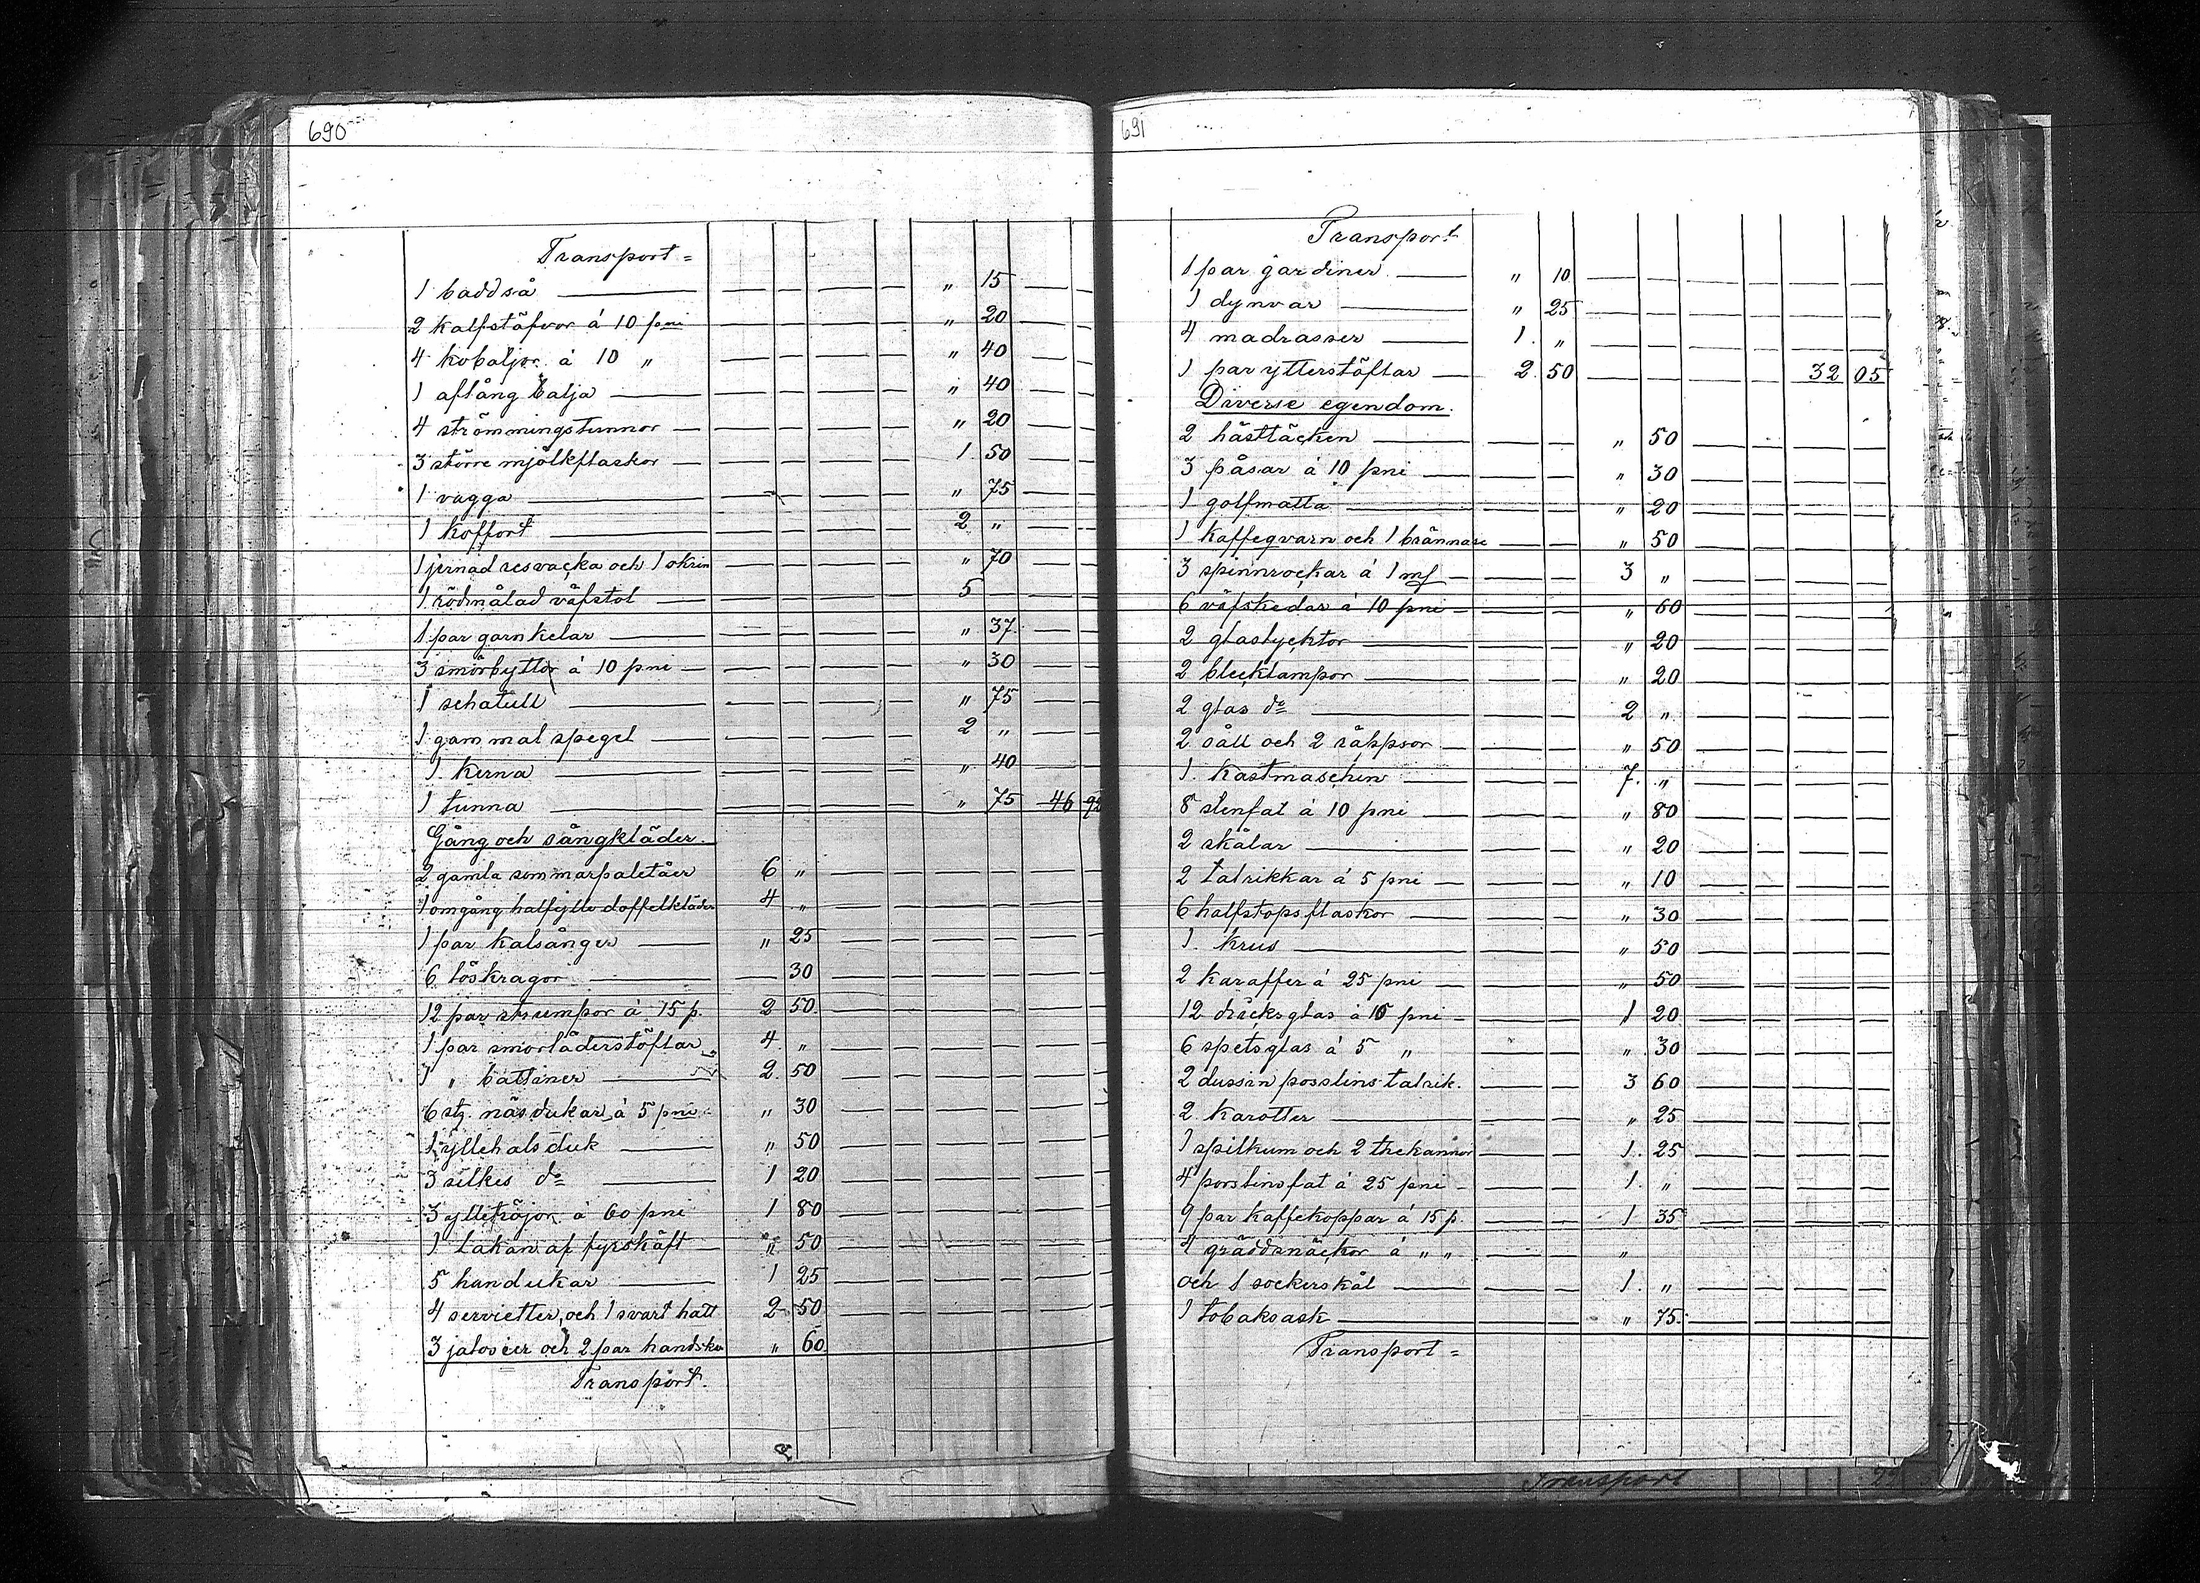 690
Transport =
1 baddså " 15
2 kalfstäfvor á 10 pni " 20
4 kobaljor á 10 " " 40
1 aflång balja " 40
4 strömmingstunnor " 20
3 större mjölkflaskor 1 50
1 vagga " 75
1 koffort 2 "
1 jernad resvacka och 1 skrin " 70
1 rödmålad väfstol 5
1 par garnkelar " 37
3 smörbyttor á 10 pni " 30
1 schatull " 75
1 gammal spegel 2 "
1 kerna " 40
1 tunna " 75 46
Gång och sängkläder.
2 gamla sommarpaletåer 6 "
1 omgång halfylle doffelkläder 4 "
1 par kalsånger " 25
6 löskragor 30
12 par strumpor á 15 p. 2 50
1 par smorläderstöflar 4 "
1 " battiner 2 50
6 st. näsdukar á 5 pni " 30
1 yllehalsduk " 50
3 silkes do 1 20
3 ylletröjor á 60 pni 1 80
1 lakan af fyrskäft " 50
5 handukar 1 25
4 servietter, och 1 svart hatt 2 50
3 jalosier och 2 par handskar " 60
Transport.
691
Transport
1 par gardiner " 10
1 dynvar " 25
4 madrasser 1 "
1 par ytterstöflar 2 50 32 05
Diverse egendom.
2 hästtäcken " 50
3 påsar á 10 pni " 30
1 golfmatta " 20
1 kaffeqvarn och 1 brännare " 50
3 spinnrockar á 1 mk 3 "
6 väfskedar á 10 pni " 60
2 glaslycktor " 20
2 blecklampor " 20
2 glas do 2 "
2 såll och 2 räppsor " 50
1 kastmaschin 7 "
8 stenfat á 10 pni " 80
2 skålar " 20
2 talrikkar á 5 pni " 10
6 halfstopsflaskor " 30
1 krus " 50
2 karaffer á 25 pni " 50
12 dricksglas a 10 pni 1 20
6 spetsglas á 5 " " 30
2 dussin posslins talrik. 3 60
2 karotter " 25
1 spilkum och 2 thekannor 1 25
4 porslinsfat á 25 pni 1 "
9 par kaffekoppar á 15 p. 1 35
4 gräddsnäckor á " " "
och 1 sockerskål 1 "
1 tobaksask " 75
Transport =
Transport